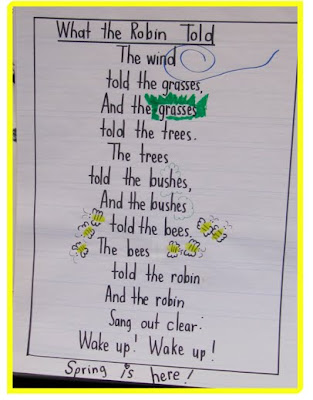 What the Robin Told
The wind
told the grasses,
And the grasses
told the trees.
The trees
told the bushes,
And the bushes
told the bees.
The bees
told the robin
And the robin
Sang out clear:
Wake up! Wake up!
Spring is here!